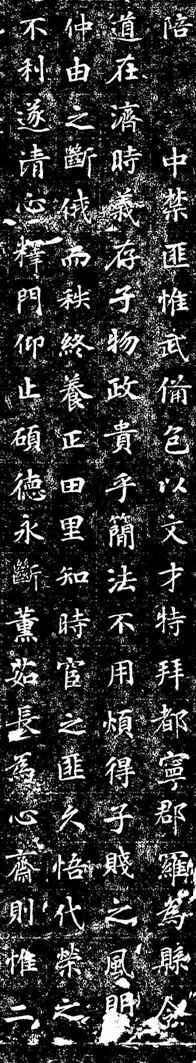 陪 中禁匪惟武俻包以文才特拜都寧郡羅為縣令
道在濟時義存子物政貴乎簡法不用煩得子賤之風閈
仲由之斷俄而秩終養正田里知時宦之匪久悟代榮之
不利遂清心釋門仰止碩德永斷薰茹長為心齋則惟二